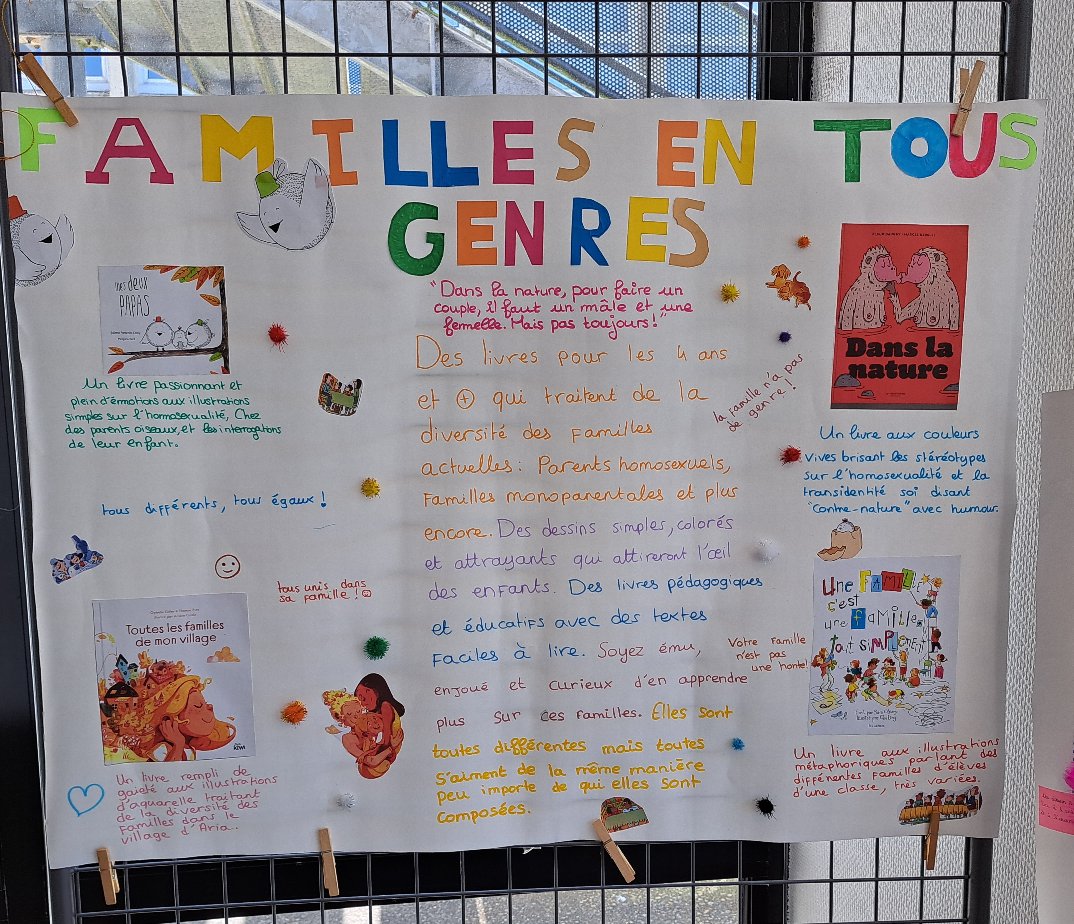 FAMILLES EN TOUS
GENRES
"Dans la nature, pour faire un
couple, il faut un mâle et une
femelle. Mais pas toujours!"
Des livres pour les 4 ans
et + qui traitent de la
diversité des familles
actuelles: Parents homosexuels,
familles monoparentales et plus
encore. Des dessins simples, colorés
et attrayants qui attireront l'œil
des enfants. Des livres pédagogiques
et éducatifs avec des textes
faciles à lire. Soyez ému,
enjoué et curieux d'en apprendre
plus sur ces familles. Elles sont
toutes différentes mais toutes
s'aiment de la même manière
peu importe de qui elles sont
composées.
MES DEUX
PAPAS
Un livre passionnant et
plein d'émotions aux illustrations
simples sur l'homosexualité, Chez
des parents oiseaux, et les interrogations
de leur enfant.
tous différents, tous égaux!
tous unis dans
sa famille!
Toutes les familles
de mon village
kiwi
Un livre rempli de
gaieté aux illustrations
d'aquarelle traitant
de la diversité des
familles dans le
village d'Aria.
la famille n'a pas
de genre!
Dans la
nature
Un livre aux couleurs
vives brisant les stéréotypes
sur l'homosexualité et la
transidentité soi disant
"contre-nature" avec humour.
Votre famille
n'est pas
une honte!
Une FAMILLE
c'est
une famille,
tout SIMPLEMENT
Un livre aux illustrations
métaphoriques parlant des
différentes familles d'élèves
d'une classe, très variées.